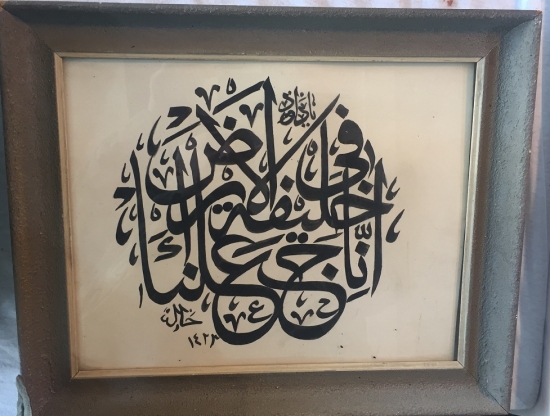 يا داود
إنّا جعلناك
خليفة
في الارض
١٤٢٣